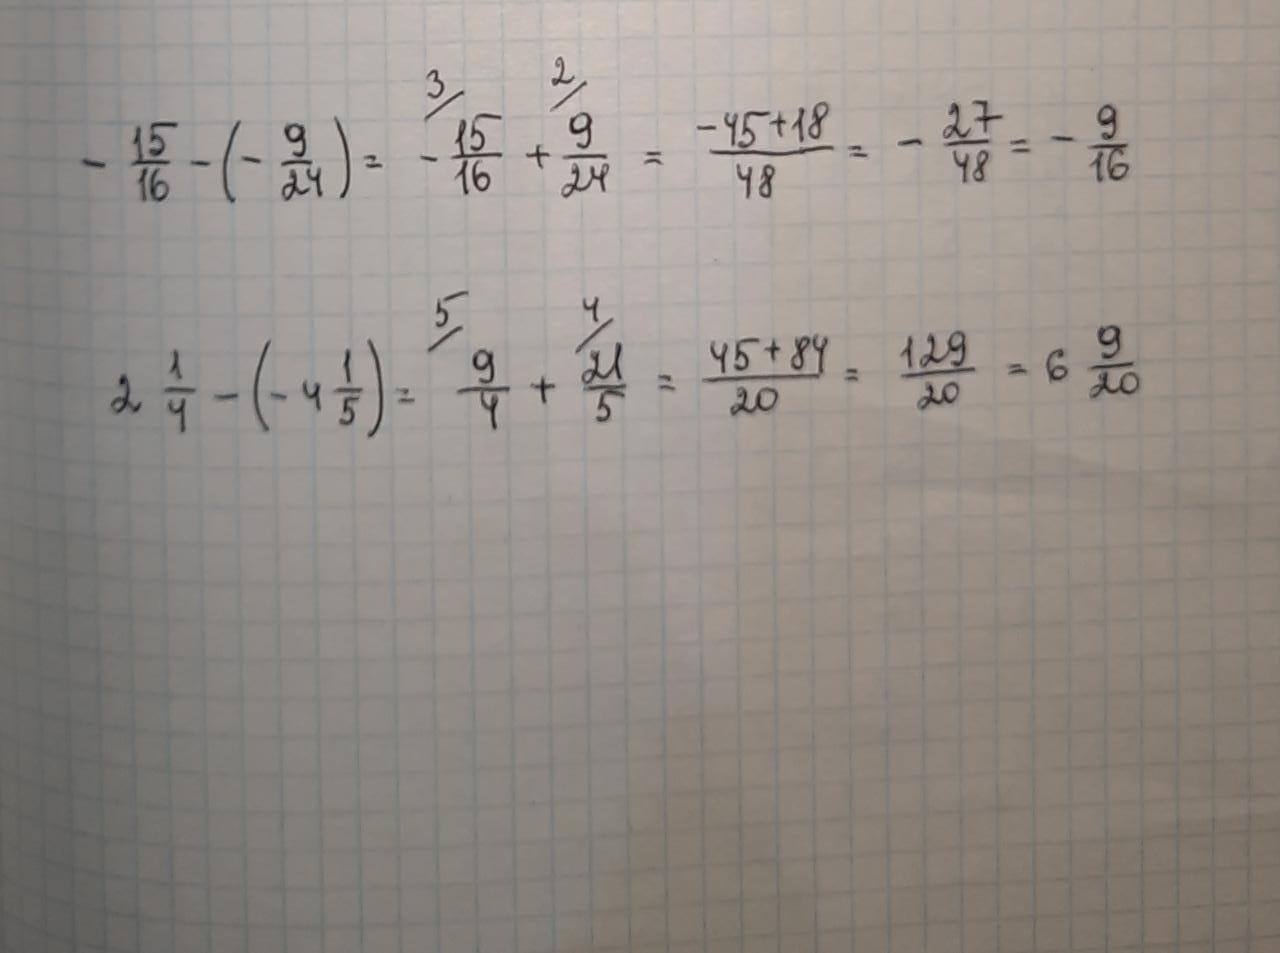 - 15/16 - (- 9/24) = 3/ - 15/16 + 2/ 9/24 = -45+18/48 = - 27/48 = - 9/16
2 1/4 - (- 4 1/5) = 5/ 9/4 + 4/ 21/5 = 45+84/20 = 129/20 = 6 9/20